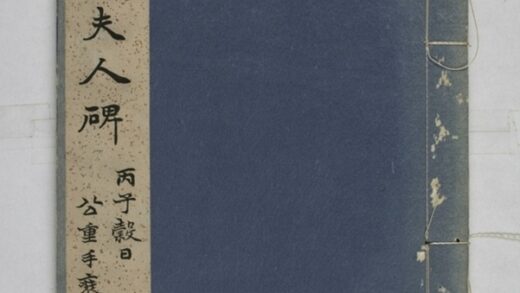 夫人碑
丙子穀日
公重手裝